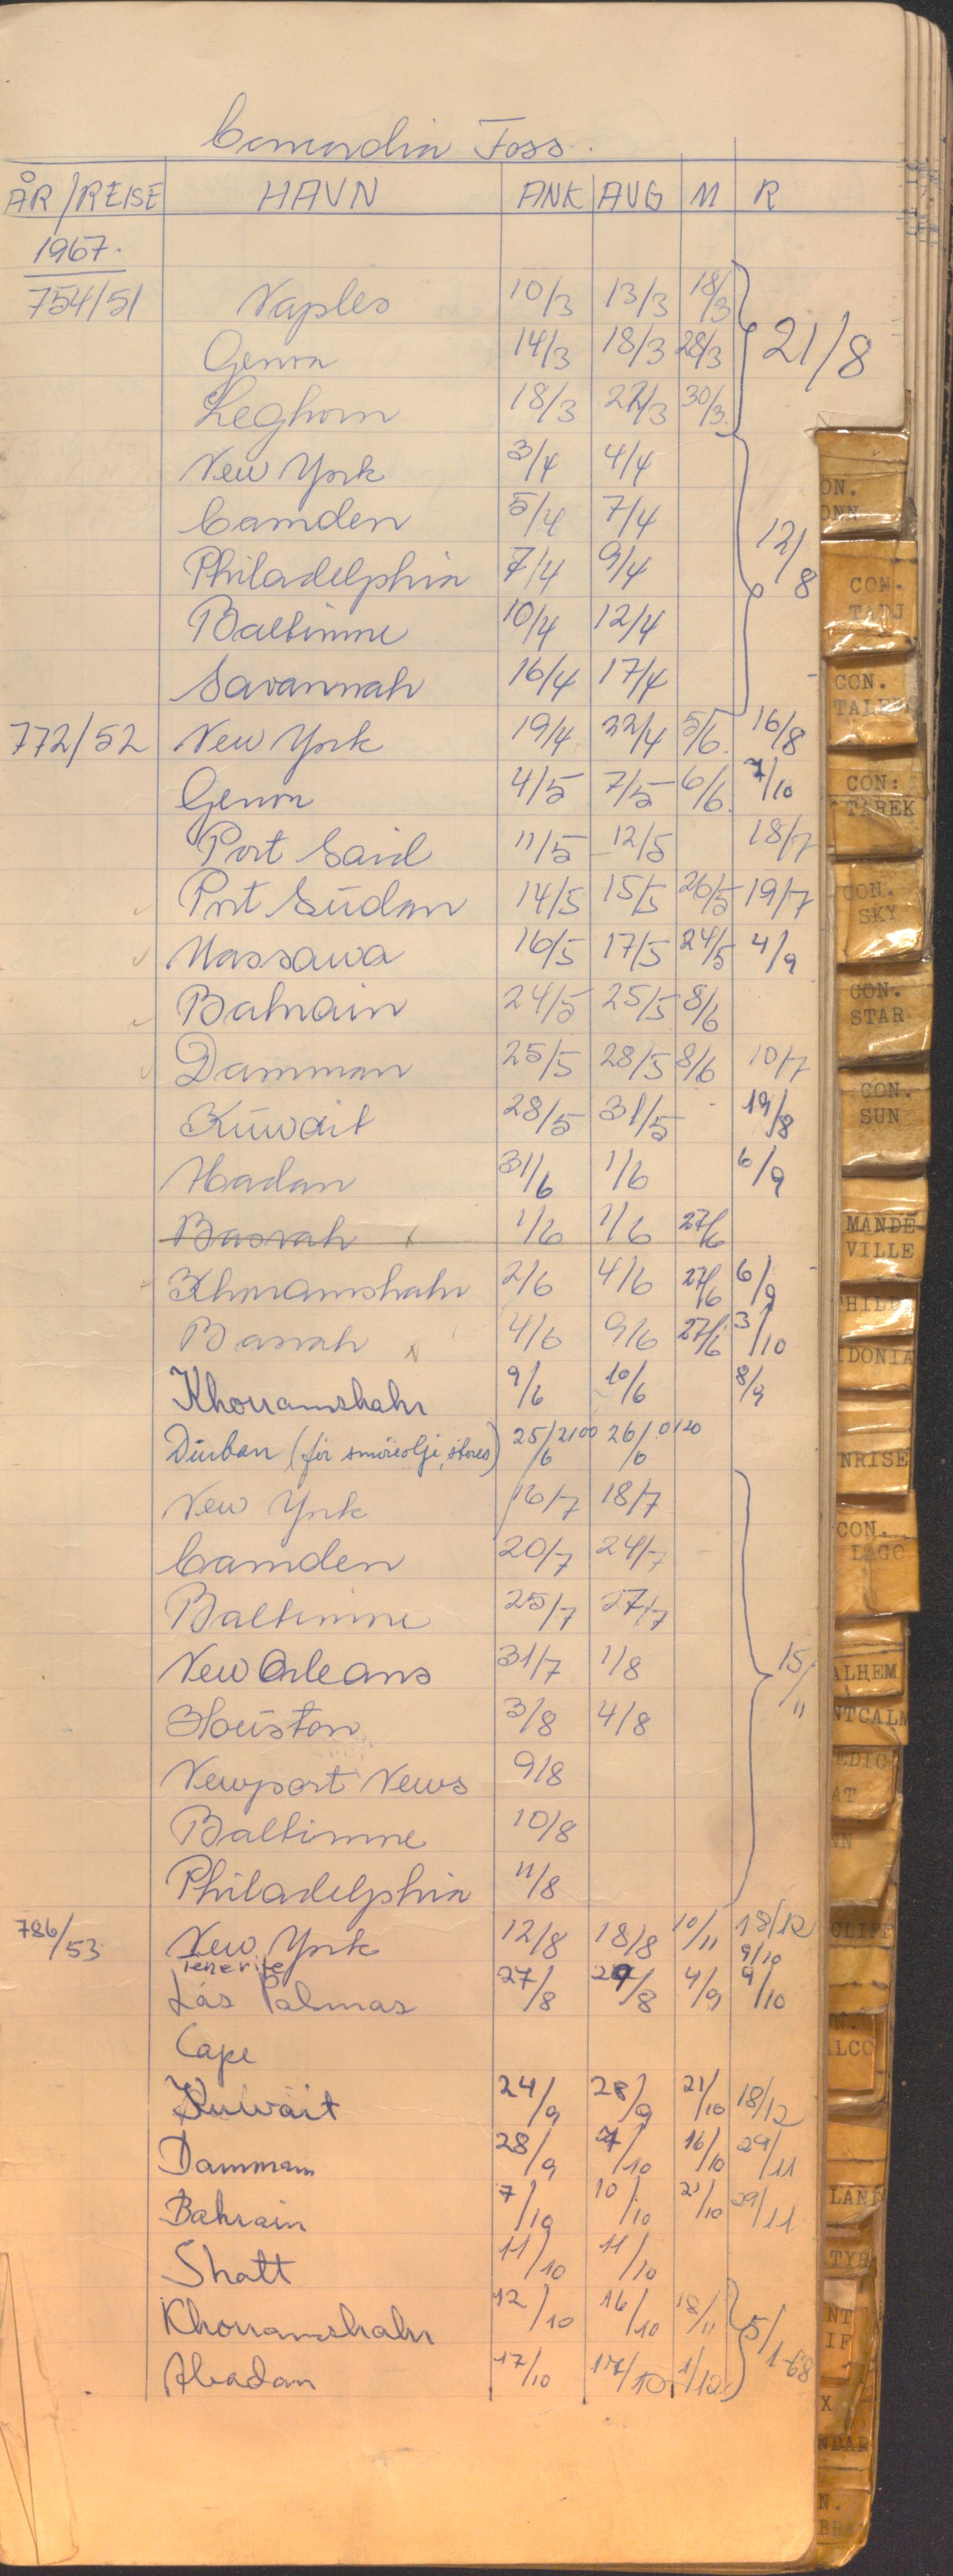 Concordia Foss.
ÅR/REISE HAVN ANK AVG M R
1967.
754/51 Naples 10/3 13/3 18/3
Genoa 14/3 18/3 28/3 21/8
Leghorn 18/3 22/3 30/3
New York 3/4 4/4
Camden 5/4 7/4
Philadelphia 7/4 9/4 12/8
Baltimore 10/4 12/4
Savannah 16/4 17/4
772/52 New York 19/4 22/4 5/6 16/8
Genoa 4/5 7/5 6/6 7/10
Port Said 11/5 12/5 18/7
Port Sudan 14/5 15/5 26/5 19/7
Massawa 16/5 17/5 24/5 4/9
Bahrain 24/5 25/5 8/6
Damman 25/5 28/5 8/6 10/7
Kuwait 28/5 31/5 19/8
Abadan 31/6 1/6 6/9
Basrah x 1/6 1/6 27/6
Khoramshahr 2/6 4/6 27/6 6/9
Basrah x 4/6 9/6 27/6 3/10
Khorramshahr 9/6 10/6 8/9
Durban (for smöreolje, stores) 25/6 2100 26/6 0120
New York 16/7 18/7
Camden 20/7 24/7
Baltimore 25/7 27/7
New Orleans 31/7 1/8 15/11
Houston 3/8 4/8
Newport News 9/8
Baltimore 10/8
Philadelphia 11/8
786/53 New York 12/8 18/8 10/11 18/12
Tenerife 9/10
Las Palmas 27/8 29/8 4/9 9/10
Cape
Kuwait 24/9 28/9 21/10 18/12
Dammam 28/9 7/10 16/10 29/11
Bahrain 7/10 10/10 21/10 29/11
Shatt 11/10 11/10
Khorramshahr 12/10 16/10 18/11 5/1-68
Abadan 17/10 17/10 1/12
ON.
ONN
CON.
TADJ
CON.
CON:
TAREK
CON.
SKY
CON.
STAR
CON.
SUN
MANDE
VILLE
IDONIA
NRISE
CON.
ALHEM
NTCALM
AT
NN
CLIFF
LCO
LAND
NT
IF
X
NDAR
N.